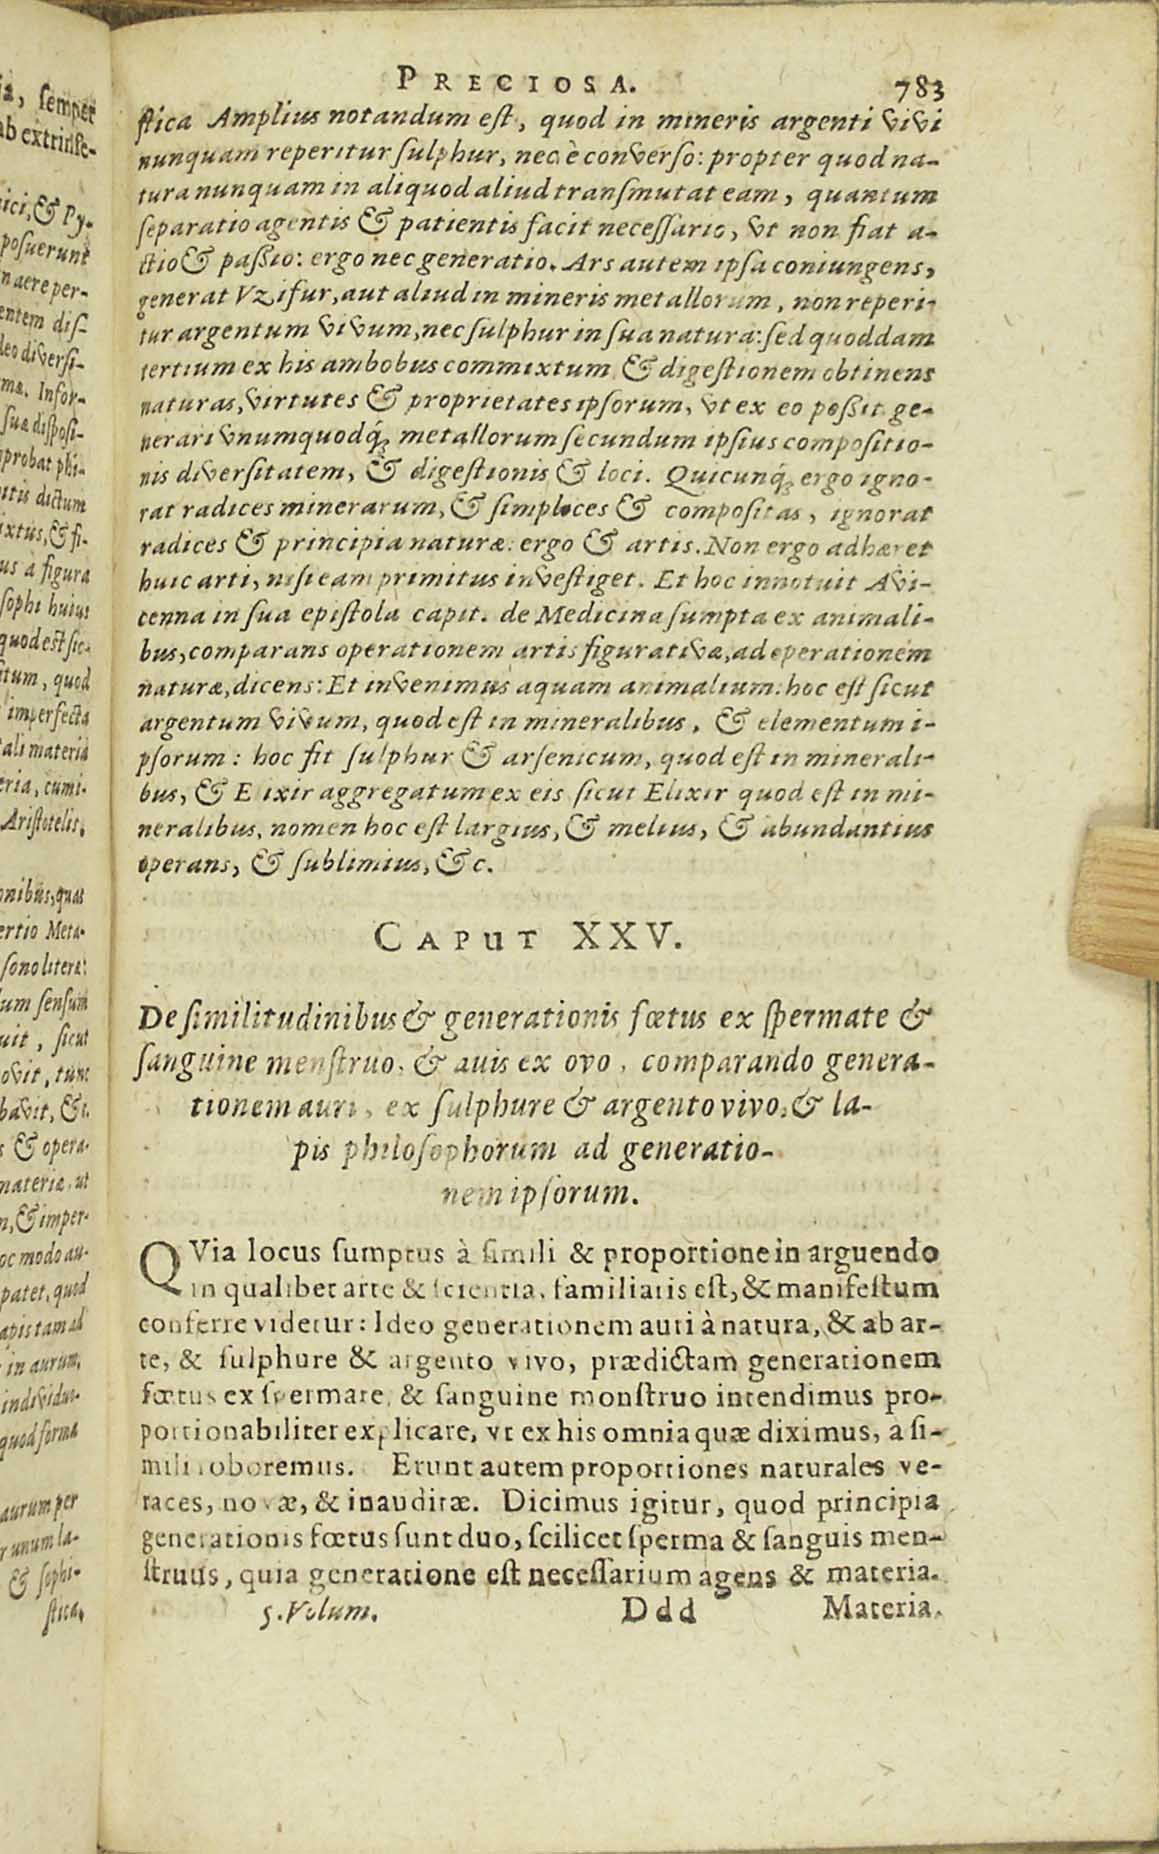 ia, ſemper
ab extrinſe-
nici, & Py-
poſuerunt
n aere per-
entem diſ-
deo diverſi-
ma. Infor-
ſuæ diſpoſi-
probat phi-
itis dictum
ixtus, & fi-
us à figura
ſophi huius
quod eſt ſic-
itum, quod
imperfecta
tali materia
eria, cumi-
Ariſtotelis,
onibus, quas
ertio Meta-
ſono litera-
lum ſenſum
uit, ſicut
ovit, tunc
bavit, &c.
s & opera-
materiæ, ut
n, & imper-
oc modo au-
patet, quod
apis tam ad
in aurum,
individua-
quod forma
aurum per
r unum la-
& ſophi-
ſtica,
PRECIOSA. 783
ſtica Amplius notandum eſt, quod in mineris argenti vivi
nunquam reperitur ſulphur, nec è converſo: propter quod na-
tura nunquam in aliquod aliud tranſmutat eam, quantum
ſeparatio agentis & patientis facit neceſſario, ut non fiat a-
ctio & paßio: ergo nec generatio. Ars autem ipſa coniungens,
generat Vzifur, aut aliud in mineris metallorum, non reperi-
tur argentum vivum, nec ſulphur in ſua natura: ſed quoddam
tertium ex his ambobus commixtum & digeſtionem obtinens
naturas, virtutes & proprietates ipſorum, vt ex eo poßit ge-
nerari vnumquodq́; metallorum ſecundum ipſius compoſitio-
nis diverſitatem, & digeſtionis & loci. Quicunq́; ergo igno-
rat radices minerarum, & ſimplices & compoſitas, ignorat
radices & principia naturæ: ergo & artis. Non ergo adhæret
huic arti, niſi eam primitus inveſtiget. Et hoc innotuit Avi-
cenna in ſua epiſtola capit. de Medicina ſumpta ex animali-
bus, comparans operationem artis figurativæ, ad operationem
naturæ, dicens: Et invenimus aquam animalium: hoc eſt ſicut
argentum vivum, quod eſt in mineralibus, & elementum i-
pſorum: hoc fit ſulphur & arſenicum, quod eſt in minerali-
bus, & E ixir aggregatum ex eis ſicut Elixir quod eſt in mi-
neralibus, nomen hoc eſt largius, & melius, & abundantius
operans, & ſublimius, &c.
CAPUT XXV.
De ſimilitudinibus & generationis fœtus ex ſpermate &
ſanguine menſtruo, & avis ex ovo, comparando genera-
tionem auri, ex ſulphure & argento vivo, & la-
pis philoſophorum ad generatio-
nem ipſorum.
QVia locus ſumptus à ſimili & proportione in arguendo
in qualibet arte & ſcientia, familiaris eſt, & manifeſtum
conferre videtur: Ideo generationem auri à natura, & ab ar-
te, & ſulphure & argento vivo, prædictam generationem
fœtus ex ſpermate, & ſanguine monſtruo intendimus pro-
portionabiliter explicare, vt ex his omnia quæ diximus, a ſi-
mili roboremus. Erunt autem proportiones naturales ve-
races, novæ, & inauditæ. Dicimus igitur, quod principia
generationis fœtus ſunt duo, ſcilicet ſperma & ſanguis men-
ſtruus, quia generatione eſt neceſſarium agens & materia.
5. Volum. Ddd Materia.